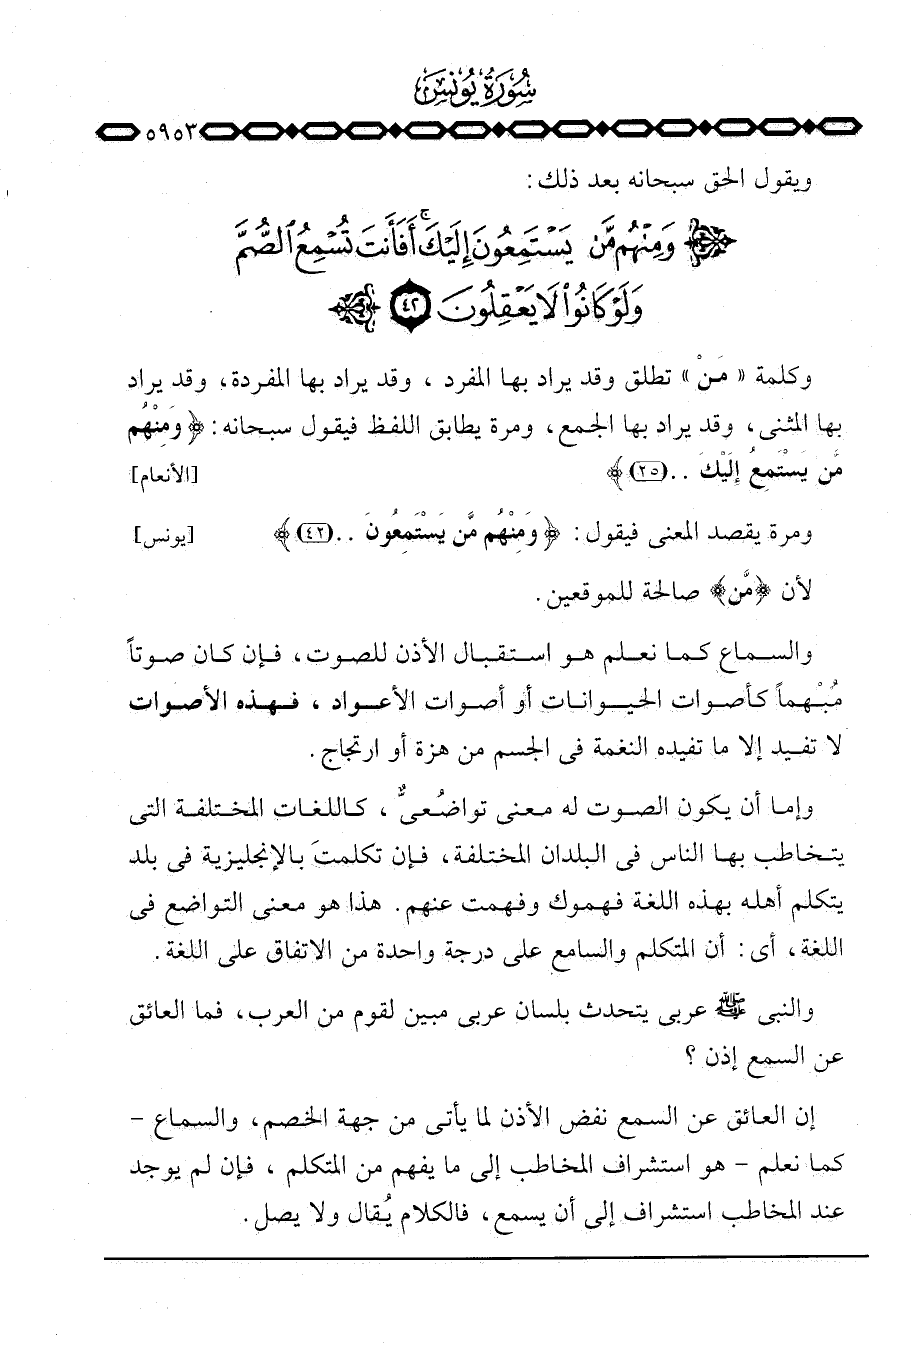 سُورَةُ يُونُسَ
٥٩٥٣
ويقول الحق سبحانه بعد ذلك :
﴿ وَمِنْهُم مَّن يَسْتَمِعُونَ إِلَيْكَ ۚ أَفَأَنتَ تُسْمِعُ ٱلصُّمَّ
وَلَوْ كَانُوا۟ لَا يَعْقِلُونَ ٤٢ ﴾
وكلمة « مَنْ » تطلق وقد يراد بها المفرد ، وقد يراد بها المفردة، وقد يراد
بها المثنى، وقد يراد بها الجمع، ومرة يطابق اللفظ فيقول سبحانه: ﴿ وَمِنْهُم
مَّن يَسْتَمِعُ إِلَيْكَ .. (٢٥) ﴾ [الأنعام]
ومرة يقصد المعنى فيقول : ﴿ وَمِنْهُم مَّن يَسْتَمِعُونَ .. (٤٢) ﴾ [يونس]
لأن ﴿مَّن﴾ صالحة للموقعين .
والسماع كما نعلم هو استقبال الأذن للصوت، فإن كان صوتاً
مُبْهماً كأصوات الحيوانات أو أصوات الأعواد ، فهذه الأصوات
لا تفيد إلا ما تفيده النغمة فى الجسم من هزة أو ارتجاج .
وإما أن يكون الصوت له معنى تواضُعىٌّ ، كاللغات المختلفة التى
يتخاطب بها الناس فى البلدان المختلفة، فإن تكلمتَ بالإنجليزية فى بلد
يتكلم أهله بهذه اللغة فهموك وفهمت عنهم. هذا هو معنى التواضع فى
اللغة، أى: أن المتكلم والسامع على درجة واحدة من الاتفاق على اللغة.
والنبى ﷺ عربى يتحدث بلسان عربى مبين لقوم من العرب، فما العائق
عن السمع إذن ؟
إن العائق عن السمع نفض الأذن لما يأتى من جهة الخصم، والسماع –
كما نعلم – هو استشراف المخاطب إلى ما يفهم من المتكلم ، فإن لم يوجد
عند المخاطب استشراف إلى أن يسمع، فالكلام يُقال ولا يصل.